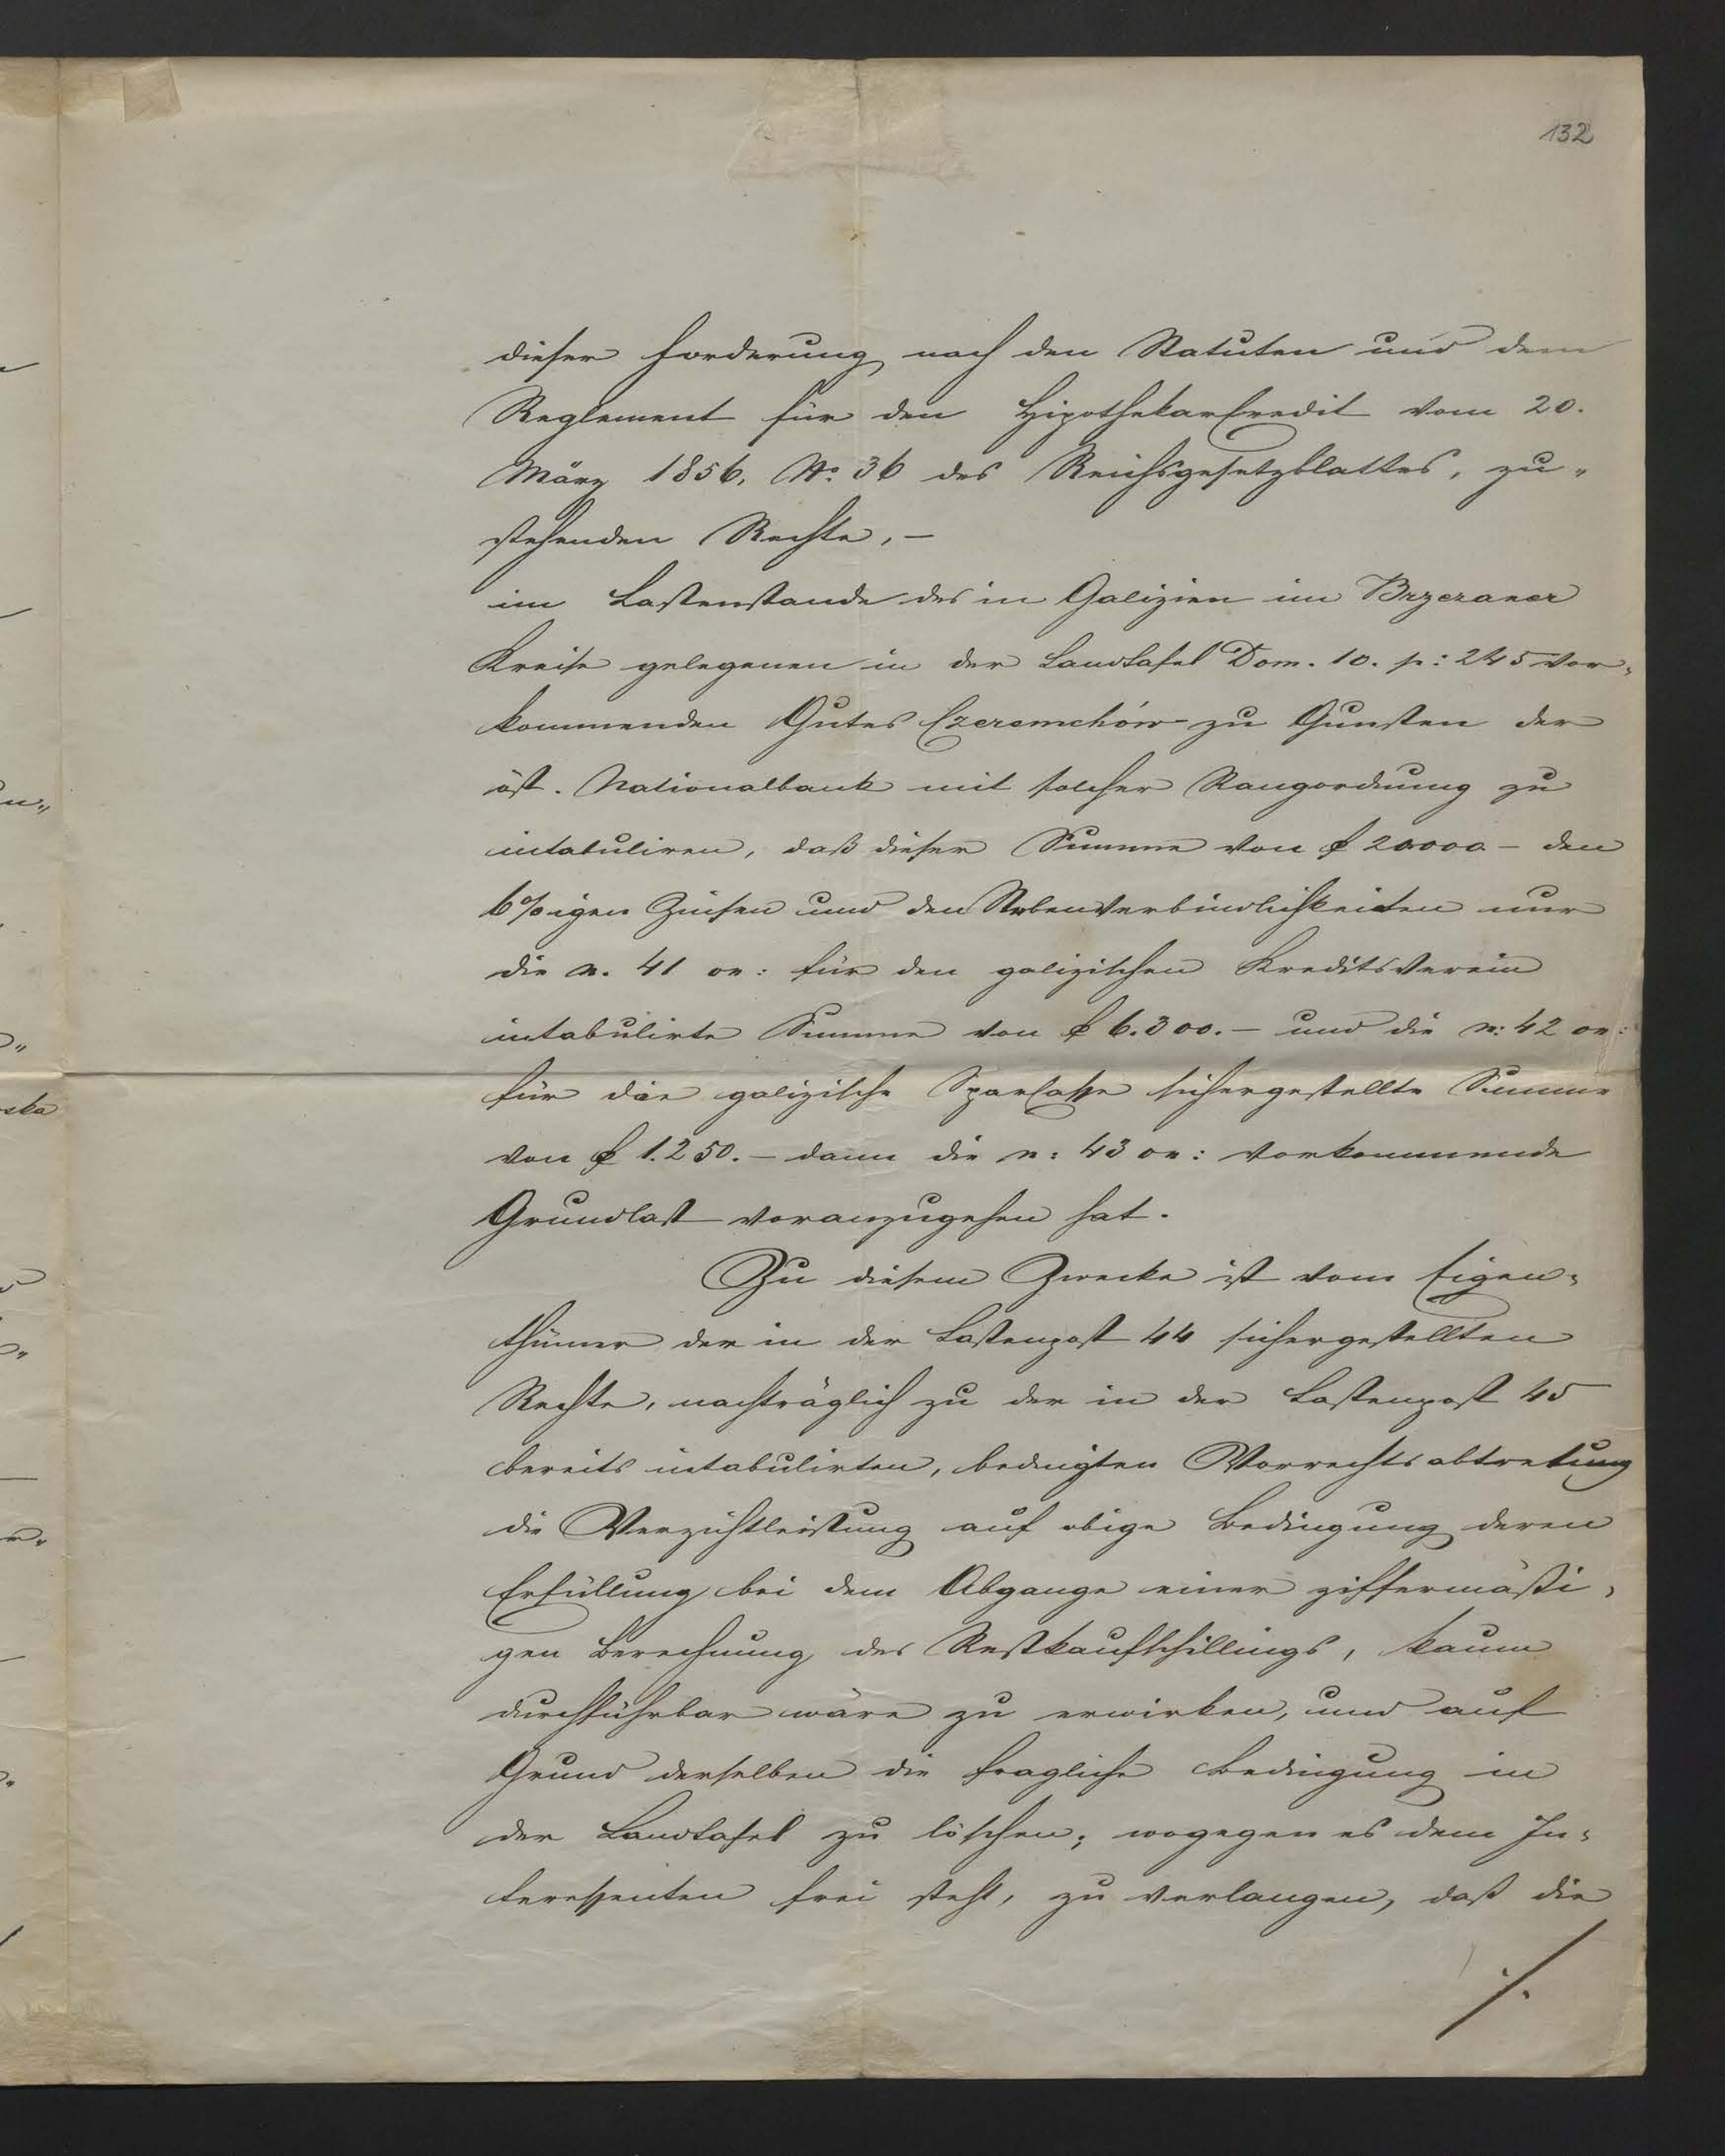 132
dieser Forderung nach den Statuten und dem
Reglement für den HipothekarCredit vom 20.
März 1856, No. 36 des Reichsgesetzblattes, zu„
stehenden Rechte, –
im Lastenstande des in Galizien im Brzezaner
Kreise gelegenen in der Landtafel Dom. 10. p: 245 vor„
kommenden Gutes Czeremchów zu Gunsten der
öst. Nationalbank mit solcher Rangordnung zu
intabuliren, daß dieser Summe von f 20000 – den
6%igen Zinsen und den Nebenverbindlichkeiten nur
die n. 41 on: für den galizischen Kreditsverein
intabulirte Summe von f 6.300. – und die n: 42 on:
für die galizische SparCasse sichergestellte Summe
von f 1.250. – dann die n: 43 on: vorkommende
Grundlast voranzugehen hat.
Zu diesem Zwecke ist vom Eigen„
thümer der in der Lastenpost 44 sichergestellten
Rechte, nachträglich zu der in der Lastenpost 45
bereits intabulirten, bedingten Vorrechtsabtretung
die Verzichtleistung auf obige Bedingung deren
Erfüllung bei dem Abgange einer ziffermäßi„
gen Berechnung des Restkaufschillings, kaum
durchführbar wäre zu erwirken, und auf
Grund derselben die fragliche Bedingung in
der Landtafel zu löschen; wogegen es dem In„
teressenten frei steht, zu verlangen, daß die
./.